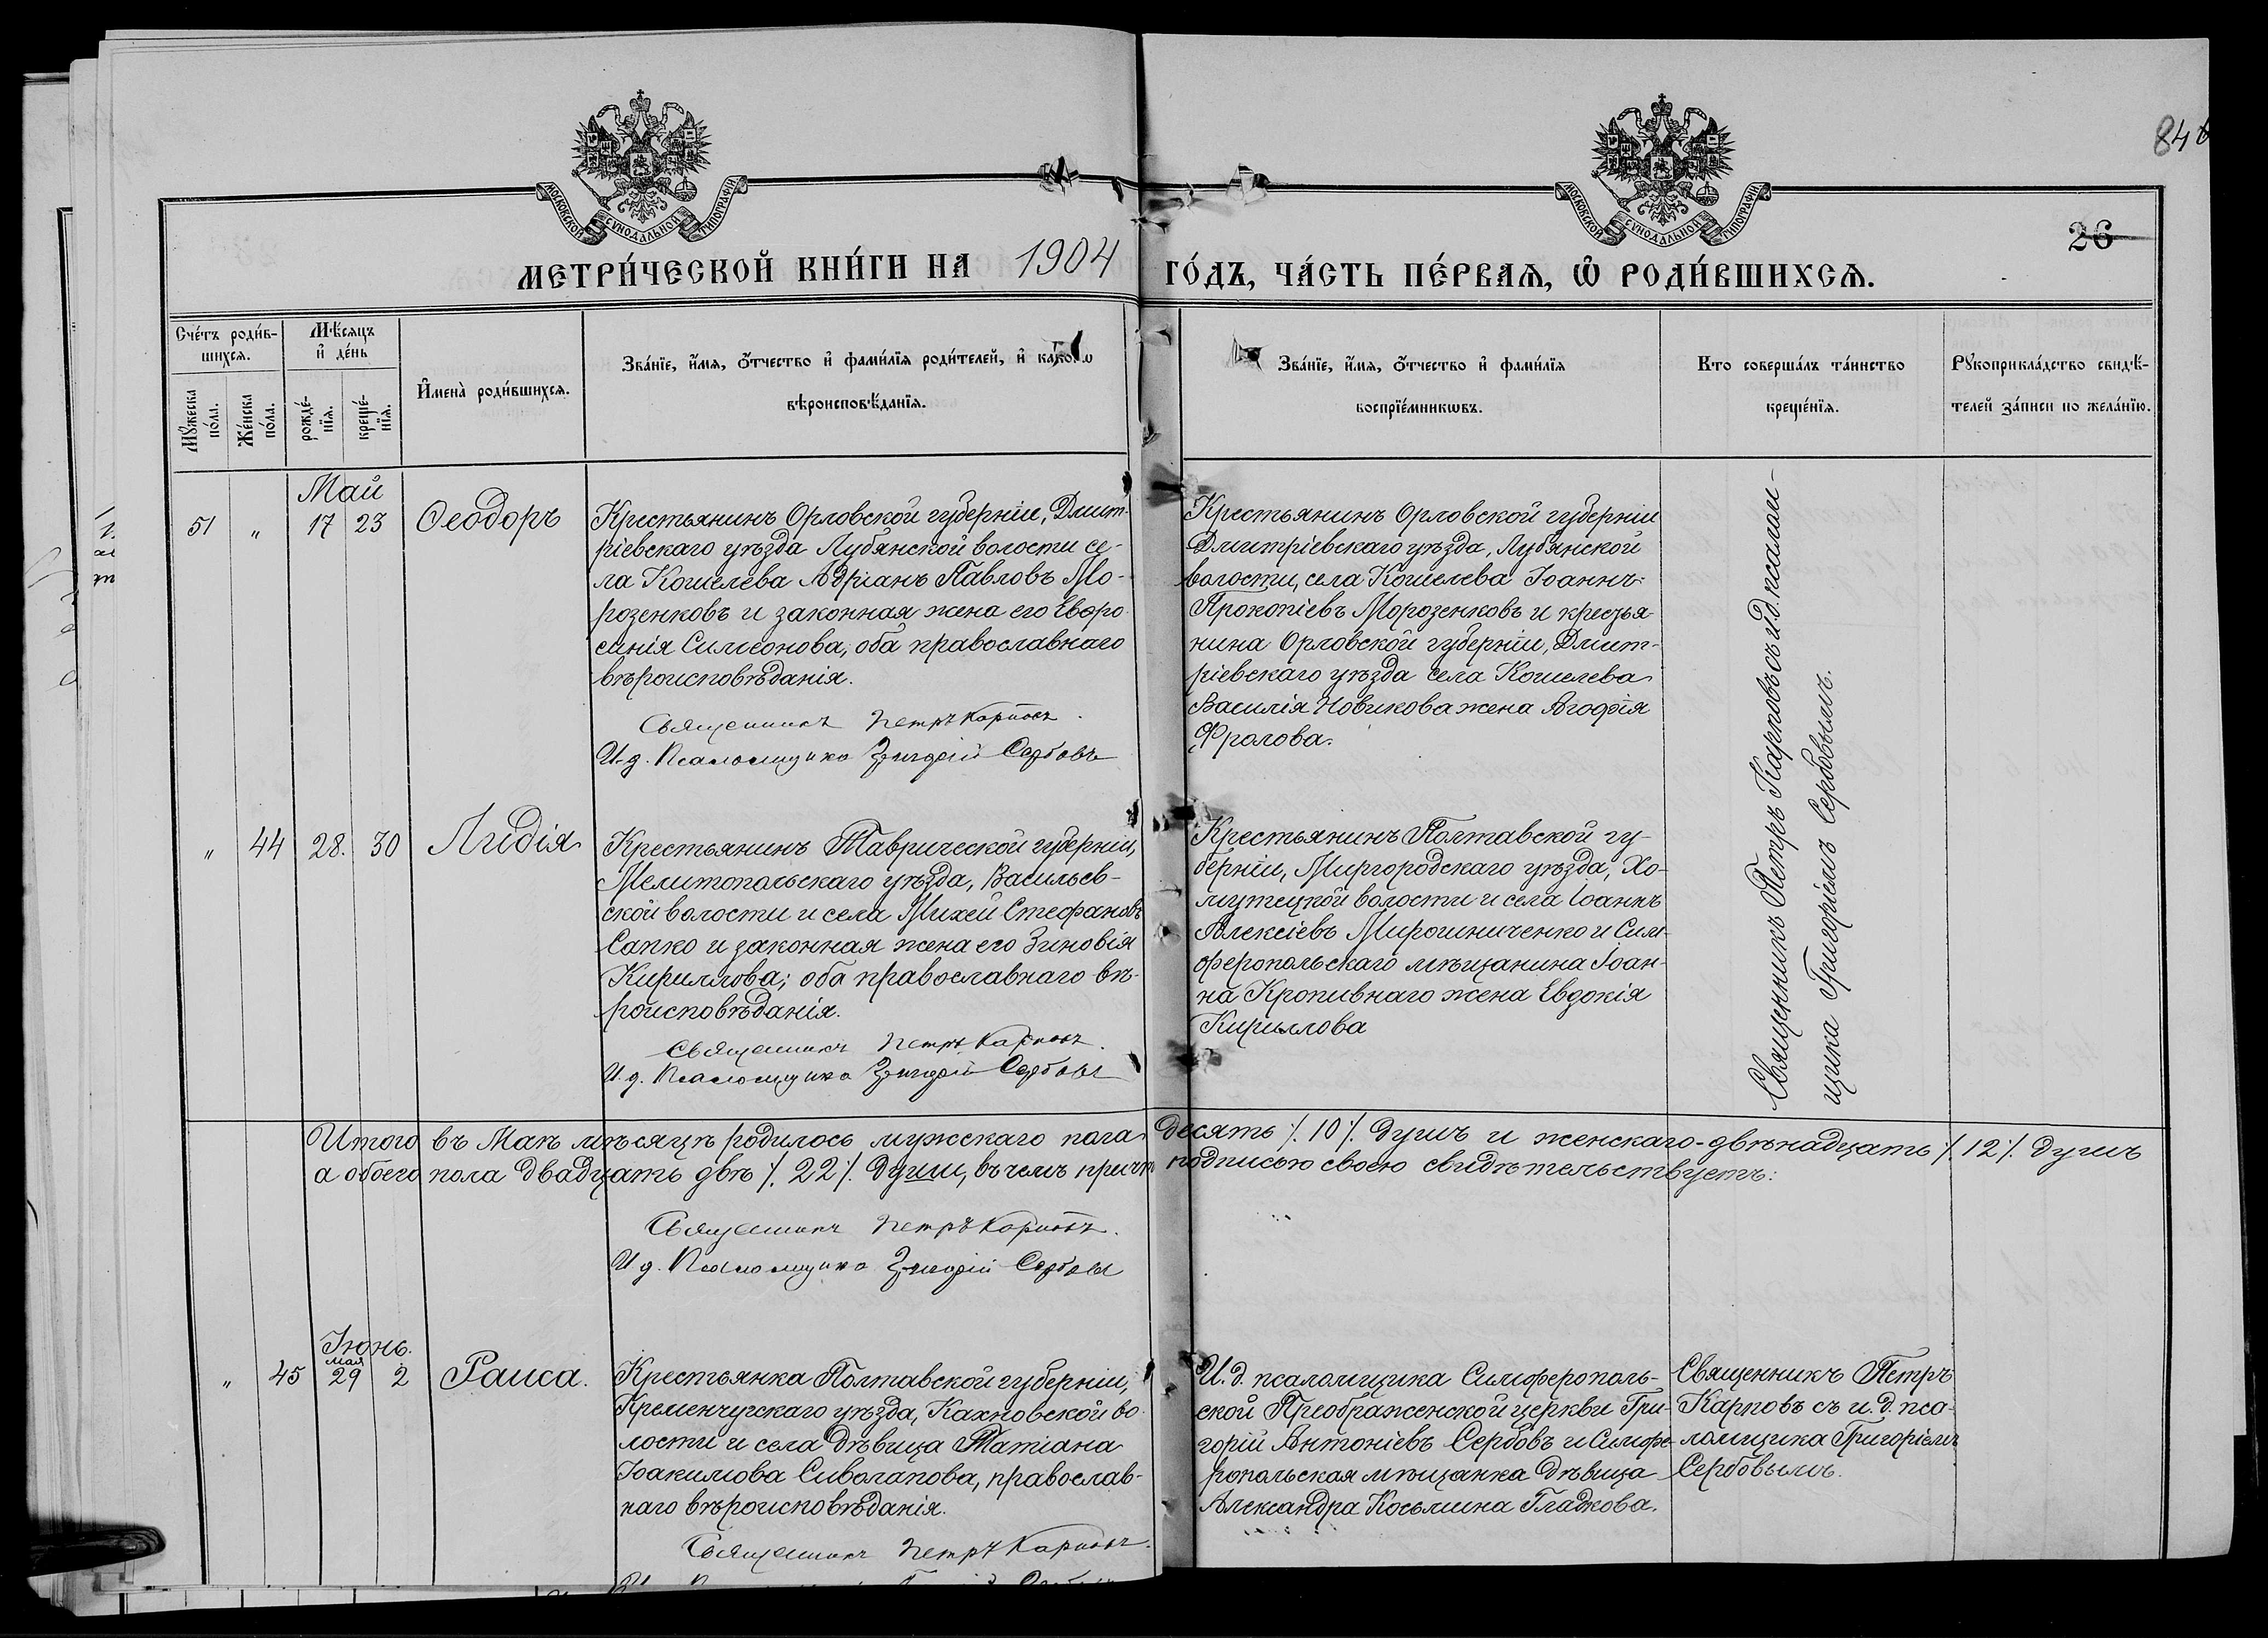 846
МОСКОВСКОЙ СУНОДАЛЬНОЙ ТИПОГРАФІИ
МОСКОВСКОЙ СУНОДАЛЬНОЙ ТИПОГРАФІИ
26
МЕТРИ́ЧЕСКОЙ КНИ́ГИ НА 1904 ГО́ДЪ, ЧА́СТЬ ПЕ́РВАѦ, Ѡ҆ РОДИ́ВШИХСѦ.
Сче́тъ роди́в-
шихсѧ.
Мꙋ́жеска по́ла.
Же́нска по́ла.
Мѣ́сѧцъ
и҆ де́нь
рожде́-
нїѧ.
креще́-
нїѧ.
И҆мена̀ роди́вшихсѧ.
Зва́нїе, и҆́мѧ, ѻ҆́тчество и҆ фами́лїѧ роди́телей, и҆ како́гѡ
вѣроисповѣ́данїѧ.
Зва́нїе, и҆́мѧ, ѻ҆́тчество и҆ фами́лїѧ
воспрїе́мникѡвъ.
Кто соверша́лъ та́инство
креще́нїѧ.
Рꙋкоприкла́дство свидѣ́-
телей за́писи по жела́нїю.
Май
51 " 17 23 Ѳеодоръ
Крестьянинъ Орловской губерніи, Дмит-
ріевскаго уѣзда Лубянской волости се-
ла Кошелева Адріанъ Павловъ Мо-
розенковъ и законная жена его Евфро-
синія Симеонова, оба православнаго
вѣроисповѣданія.
Священникъ Петръ Карповъ.
И. д. Псаломщика Григорій Сербовъ
Крестьянинъ Орловской губерніи
Дмитріевскаго уѣзда, Лубянской
волости, села Кошелева Іоаннъ
Прокопіевъ Морозенковъ и крестья-
нина Орловской губерніи, Дмит-
ріевскаго уѣзда села Кошелева
Василія Новикова жена Агафія
Фролова.
Священникъ Петръ Карповъ съ и. д. псалом-
щика Григоріемъ Сербовымъ.
" 44 28. 30 Лидія
Крестьянинъ Таврической губерніи,
Мелитопольскаго уѣзда, Васильев-
ской волости и села Михей Стефановъ
Сапко и законная жена его Зиновія
Кириллова; оба православнаго вѣ-
роисповѣданія.
Священникъ Петръ Карповъ.
И. д. Псаломщика Григорій Сербовъ
Крестьянинъ Полтавской гу-
берніи, Миргородскаго уѣзда, Хо-
мутецкой волости и села Іоаннъ
Алексіевъ Мирошниченко и Сим-
феропольскаго мѣщанина Іоан-
на Кропивнаго жена Евдокія
Кириллова
Итого въ Маѣ мѣсяцѣ родилось мужскаго пола десять /. 10 /. душъ и женскаго - двѣнадцать /. 12 /. душъ
а обоего пола двадцать двѣ /. 22 /. души, въ чемъ причтъ подписью своею свидѣтельствуетъ:
Священникъ Петръ Карповъ.
И д. Псаломщика Григорій Сербовъ
Іюнь.
мая
" 45 29 2 Раиса.
Крестьянка Полтавской губерніи,
Кременчугскаго уѣзда, Кахновской во-
лости и села дѣвица Татіана
Іоакимова Сиволапова, православ-
наго вѣроисповѣданія.
Священникъ Петръ Карповъ.
И. д. псаломщика Симферополь-
ской Преображенской церкви Гри-
горій Антоніевъ Сербовъ и Симфе-
ропольская мѣщанка дѣвица
Александра Косьмина Гладкова.
Священникъ Петръ
Карповъ съ и. д. пса-
ломщика Григоріемъ
Сербовымъ.